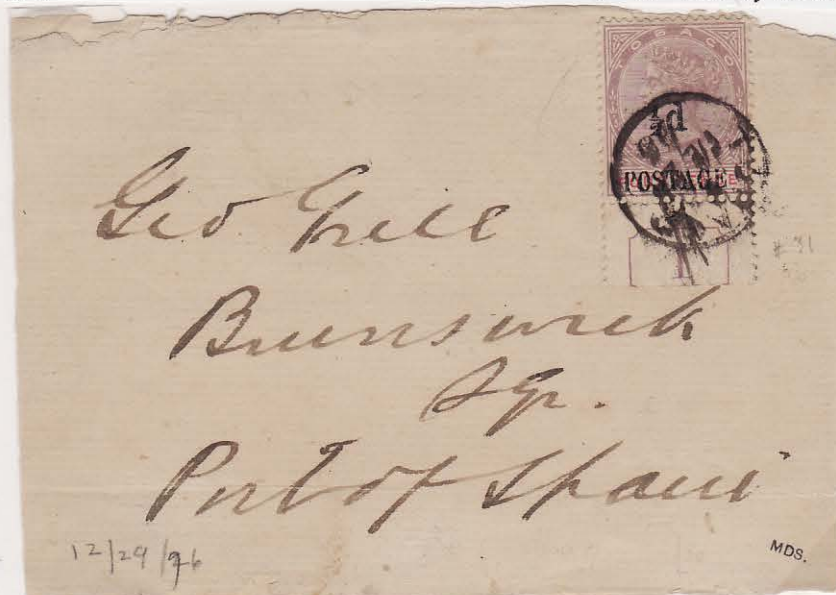 TOBAGO
½d
POSTAGE
1
Geo Grell
Brunswick
Sqr.
Port of Spain
12/29/96
MDS.